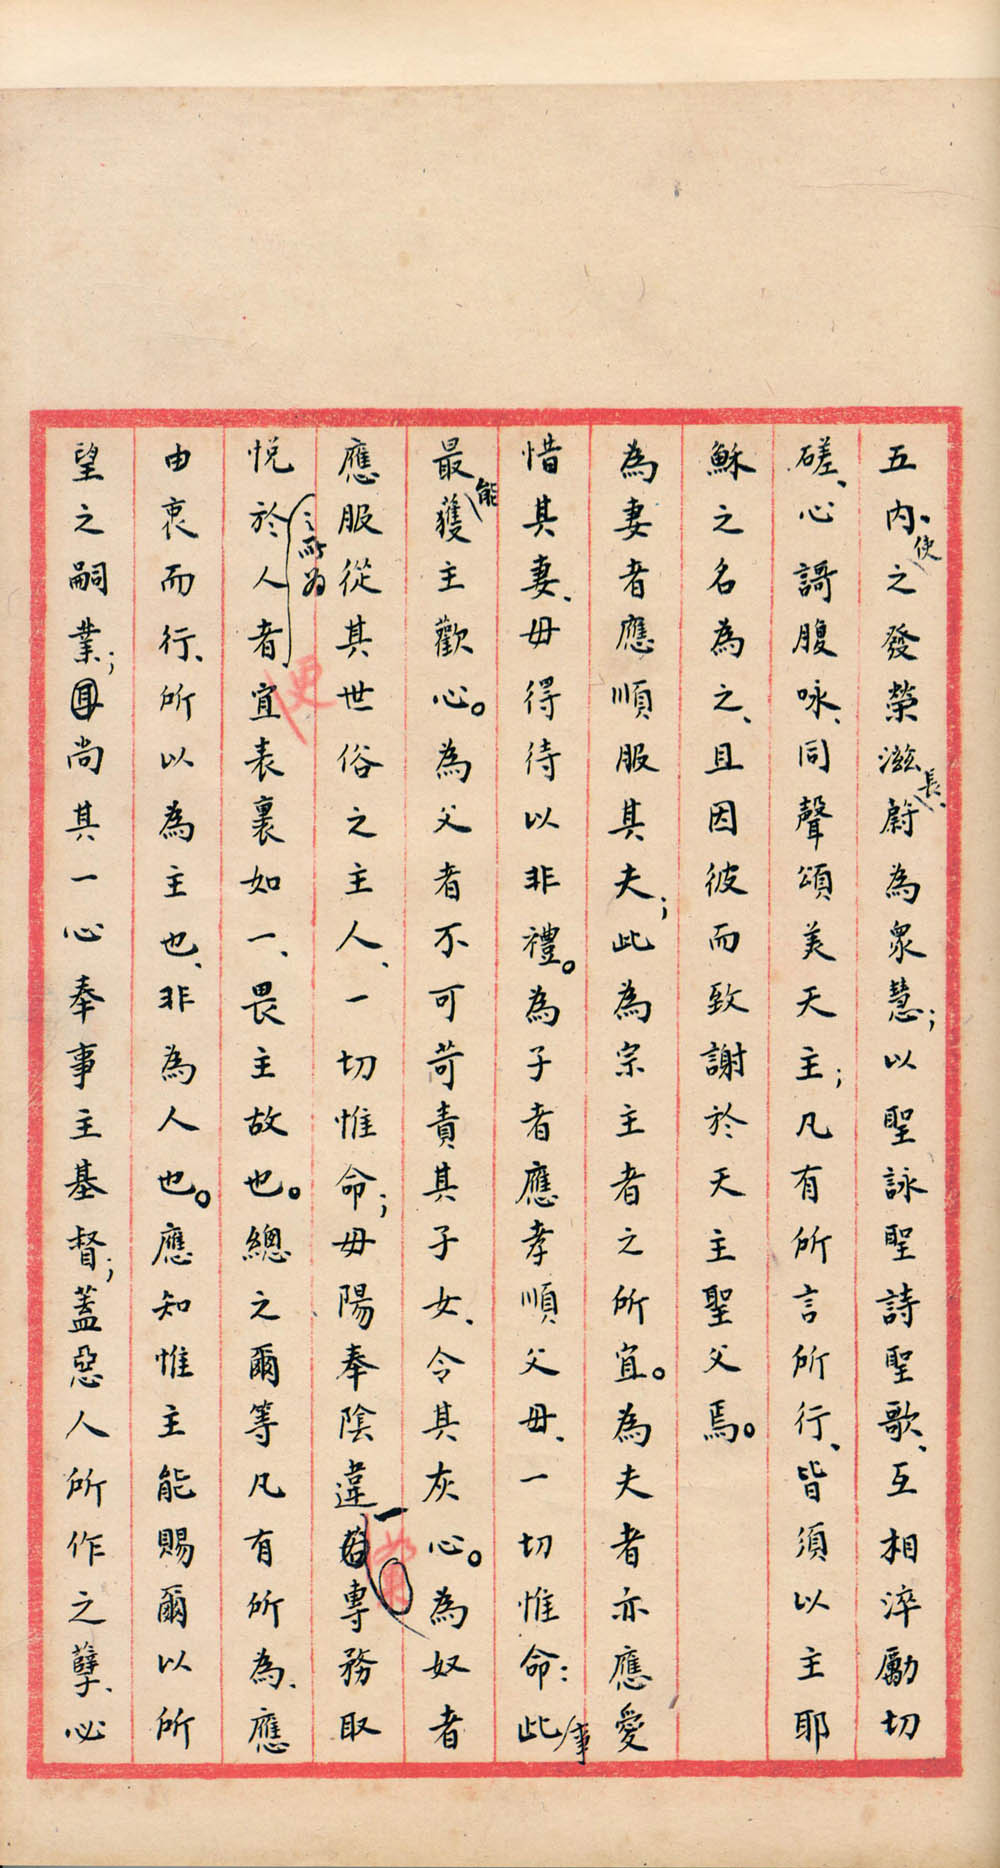 五内、使之發榮滋長、蔚為衆慧；以聖詠聖詩聖歌、互相淬勵切
磋、心謌腹咏、同聲頌美天主；凡有所言所行、皆須以主耶
穌之名為之、且因彼而致謝於天主聖父焉。
為妻者應順服其夫；此為宗主者之所宜。為夫者亦應愛
惜其妻、毋得待以非禮。為子者應孝順父母、一切惟命：此事
最能獲主歡心。為父者不可苛責其子女、令其灰心。為奴者
應服從其世俗之主人、一切惟命；毋陽奉陰違一專務取
悅於人者之所為宜表裏如一、畏主故也。總之爾等凡有所為、應
由衷而行、所以為主也、非為人也。應知惟主能賜爾以所
望之嗣業；尚其一心奉事主基督；蓋惡人所作之孽、必